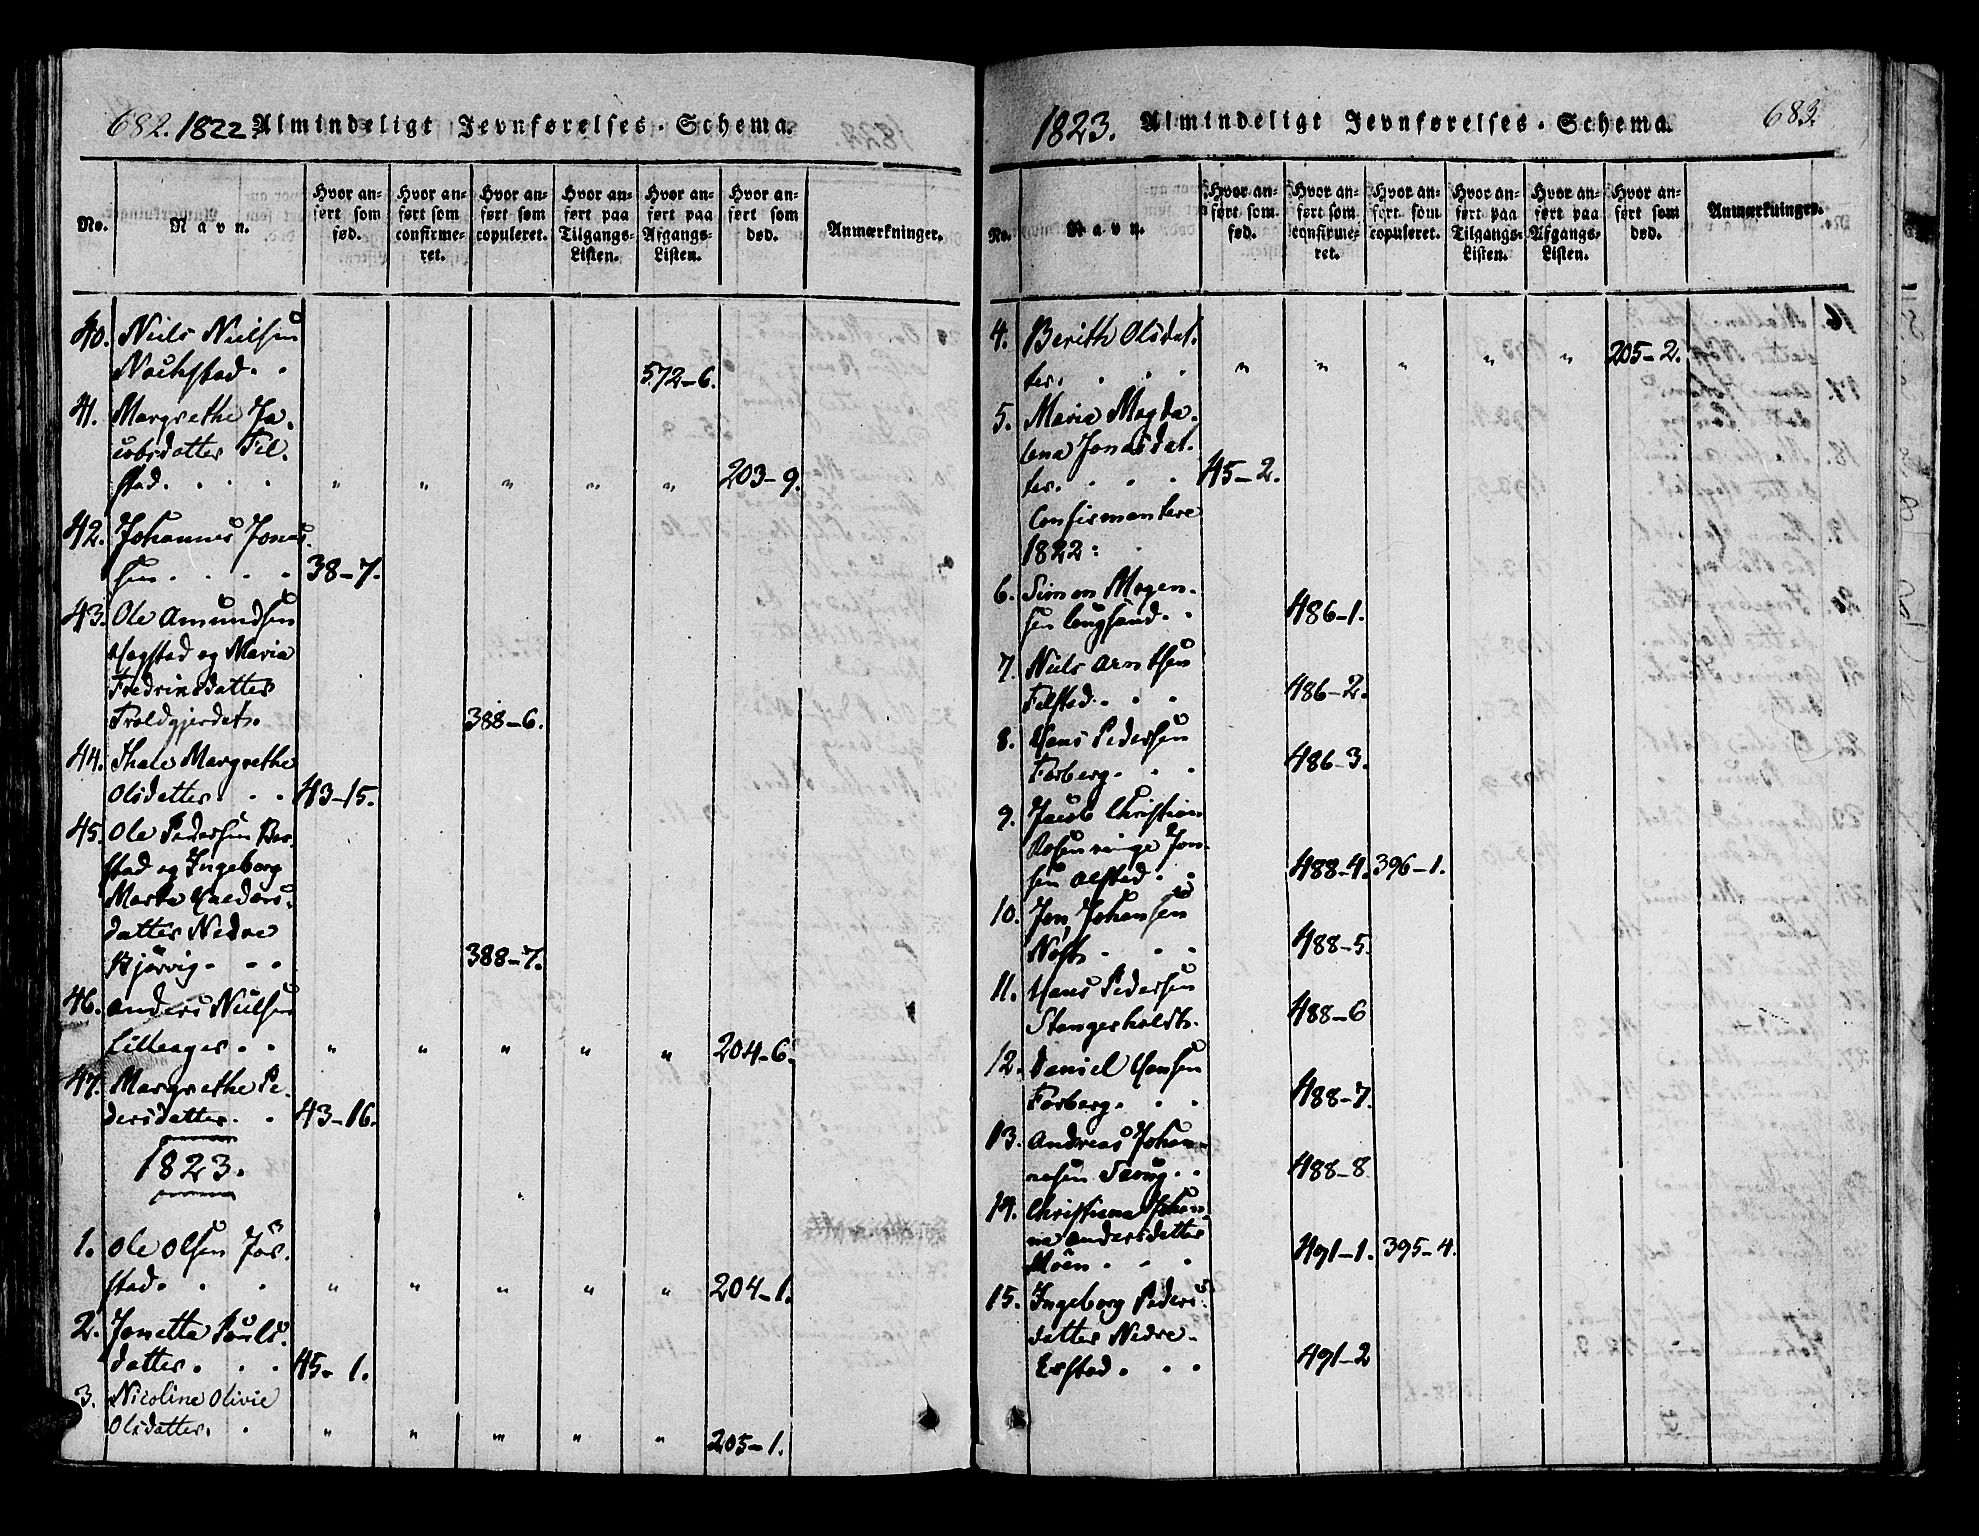 682. 1822 Almindeligt Jevnførelses-Schema.
No. Navn. Hvor anført som fød. Hvor anført som confirmeret. Hvor anført som copuleret. Hvor anført paa Tilgangs-Listen. Hvor anført paa Afgangs-Listen. Hvor anført som død. Anmærkninger.
40. Niels Nielsen
572-6.
41. Margrethe Ja-
cobsdatter Til-
stad. . . . " " " " " 203-9.
42. Johannes Jonas-
sen. . . . 38-7.
43. Ole Amundsen
Hagstad og Maria
Fredricsdatter
Troldgjerdet. 388-6.
44. Thale Margrethe
Olsdatter. . . 43-15.
45. Ole Pedersen
stad og Ingeborg
Marta
datter Nedre
388-7.
46. Anders Nielsen
Lilleager. . " " " " " 204-6.
47. Margrethe Pe-
dersdatter. . 43-16.
1823.
1. Ole Olsen
stad. . . " " " " " 204-1.
2. Jonetta Pouls-
datter. . . 45-1.
3. Nicoline Olivie
Olsdatter. . " " " " " 205-1.
1823. Almindeligt Jevnførelses-Schema. 683.
No. Navn. Hvor anført som fød. Hvor anført som confirmeret. Hvor anført som copuleret. Hvor anført paa Tilgangs-Listen. Hvor anført paa Afgangs-Listen. Hvor anført som død. Anmærkninger.
4. Berith Olsdat-
ter. . . . " " " " " 205-2.
5. Maria Magda-
lena Jonasdat-
ter. . . . 45-2.
Confirmantere
1822:
6. Simon Mogen-
sen 486-1.
7. Niels Arntsen
Filstad. . . 486-2.
8. Hans Pedersen
Forberg. . . 486-3.
9. Jacob Christian
Rosenvinge Jon-
sen Alstad. . 488-4. 396-1.
10. Jon Johansen
488-5.
11. Hans Pedersen
Stangerholdt. 488-6
12. Daniel Hansen
Forberg. . . 488-7.
13. Andreas Johan-
nesen . . 488-8
14. Christiana Johan-
na Andersdatter
Möen. . . . 491-1. 395-4.
15. Ingeborg Peders-
datter Nedre-
Eftad. . . 491-2